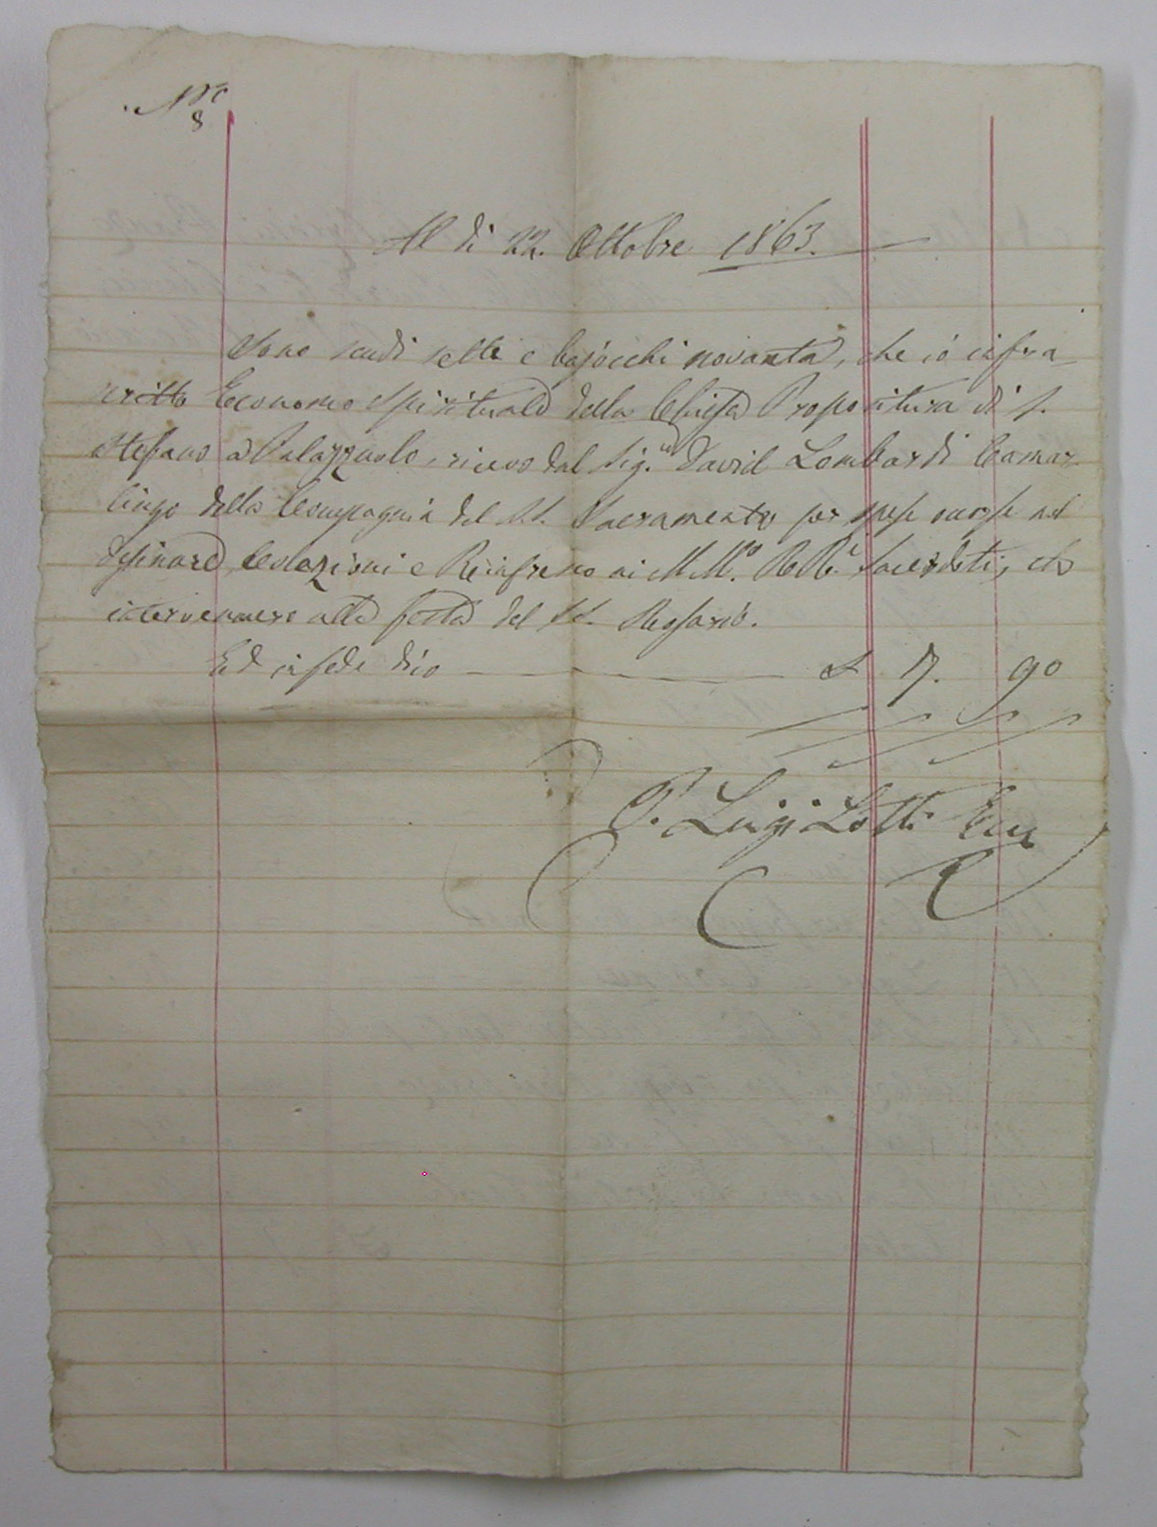 Nro
8
Al dì 22. Ottobre 1863.
Sono scudi sette e bajocchi novanta, che io infra-
scritto Economo Spirituale della Chiesa Propositura di S.
Stefano a Palazzuolo, ricevo dal Sig.r David Lombardi Camar-
lingo della Compagnia del SS. Sacramento per spese occorse nel
desinare, Colazioni e Rinfresco ai MM. RR. Sacerdoti, che
intervennero alla festa del SS. Rossario.
Ed in fede dico 7. 90
P. Luigi Lotti